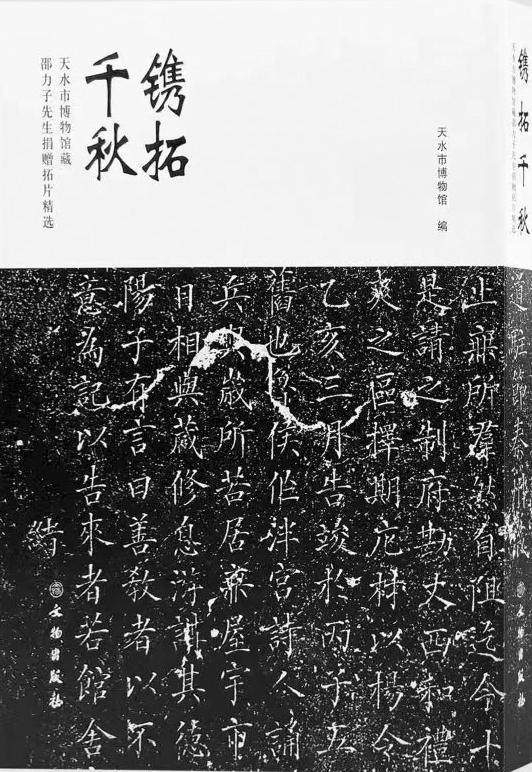 镌拓
千秋
天水市博物馆藏
邵力子先生捐赠拓片精选
天水市博物馆 编
止無所羣然自阻迄今十
是請之制府勘丈西和禮
爽之區擇期庀材以楊令
乙亥三月告竣於丙子五
舊也魯侯作泮宮詩人誦
兵與歲所苦居無屋宇市
日相與蔵修息游講其德
陽子有言曰善教者以不
意為記以告來者若館舍
緒
文物出版社
镌拓千秋
天水市博物馆藏邵力子先生捐赠拓片精选
文物出版社